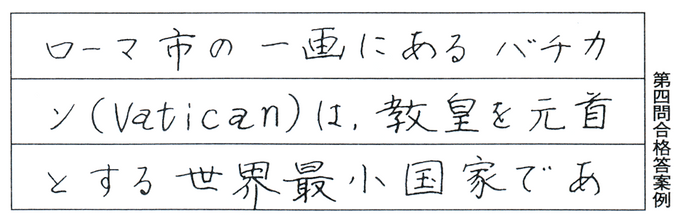 ローマ市の一画にあるバチカ
ン(Vatican)は,教皇を元首
とする世界最小国家であ
第四問合格答案例